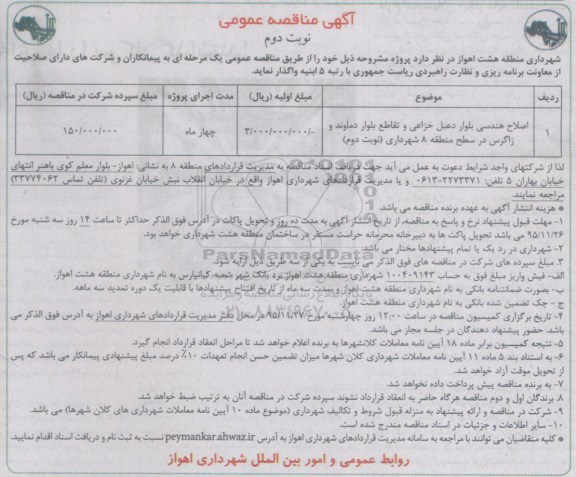 آگهی مناقصه عمومی
نوبت دوم
شهرداری منطقه هشت اهواز در نظر دارد پروژه مشروحه ذیل خود را از طریق مناقصه عمومی یک مرحله ای به پیمانکاران و شرکت های دارای صلاحیت از معاونت برنامه ریزی و نظارت راهبردی ریاست جمهوری با رتبه ۵ ابنیه واگذار نماید.
ردیف موضوع مبلغ اولیه (ریال) مدت اجرای پروژه مبلغ سپرده شرکت در مناقصه (ریال)
۱ اصلاح هندسی بلوار دعبل خزاعی و تقاطع بلوار دماوند و زاگرس در سطح منطقه ۸ شهرداری (نوبت دوم) ۳/۰۰۰/۰۰۰/۰۰۰/- چهار ماه ۱۵۰/۰۰۰/۰۰۰
لذا از شرکتهای واجد شرایط دعوت به عمل می آید جهت دریافت اسناد مناقصه به مدیریت قراردادهای منطقه ۸ به نشانی: اهواز- بلوار معلم کوی باهنر انتهای
خیابان بهاران ۵ تلفن: ۲۲۷۳۳۷۱-۰۶۱۳ و یا مدیریت قراردادهای شهرداری اهواز واقع در خیابان انقلاب نبش خیابان غزنوی (تلفن تماس ۳۳۷۷۴۰۶۲)
مراجعه نمایند.
* هزینه انتشار آگهی به عهده برنده مناقصه می باشد.
۱- مهلت قبول پیشنهاد نرخ و پاسخ به مناقصه، از تاریخ انتشار آگهی به مدت ده روز و تحویل پاکات در آدرس فوق الذکر حداکثر تا ساعت ۱۴ روز سه شنبه مورخ
۹۵/۱۱/۲۶ می باشد تحویل پاکت ها به دبیرخانه محرمانه حراست مستقر در ساختمان منطقه هشت شهرداری خواهد بود.
۲- شهرداری در رد یک یا تمام پیشنهادها مختار می باشد.
۳- مبلغ سپرده های شرکت در مناقصه های فوق الذکر می بایست به یکی از سه طریق ذیل ارایه شود.
الف- فیش واریز مبلغ فوق به حساب ۱۰۰۴۰۹۱۴۳ شهرداری منطقه هشت اهواز نزد بانک شهر شعبه کیانپارس به نام شهرداری منطقه هشت اهواز.
ب- بصورت ضمانتنامه بانکی به نام شهرداری منطقه هشت اهواز و بمدت سه ماه از تاریخ افتتاح پیشنهادها با قابلیت یک دوره تمدید سه ماهه.
ج- چک تضمین شده بانکی به نام شهرداری منطقه هشت اهواز.
۴- تاریخ برگزاری کمیسیون مناقصه در ساعت ۱۲:۰۰ روز چهارشنبه مورخ ۹۵/۱۱/۲۷ در محل دفتر مدیریت قراردادهای شهرداری اهواز به آدرس فوق الذکر می
باشد. حضور پیشنهاد دهندگان در جلسه مجاز می باشد.
۵- نتیجه کمیسیون برابر ماده ۱۸ آیین نامه معاملات کلانشهرها به برنده اعلام خواهد شد تا مراحل انعقاد قرارداد انجام گیرد.
۶- به استناد بند ۵ ماده ۱۱ آیین نامه معاملات شهرداری کلان شهرها میزان تضمین حسن انجام تعهدات ۱۰٪ درصد مبلغ پیشنهادی پیمانکار می باشد که پس
از تحویل موقت آزاد خواهد شد.
۷- به برنده مناقصه پیش پرداخت داده نخواهد شد.
۸- برندگان اول و دوم مناقصه هرگاه حاضر به انعقاد قرارداد نشوند سپرده شرکت در مناقصه آنان به ترتیب ضبط خواهد شد.
۹- شرکت در مناقصه و ارائه پیشنهاد به منزله قبول شروط و تکالیف شهرداری (موضوع ماده ۱۰ آیین نامه معاملات شهرداری های کلان شهرها) می باشد.
۱۰- سایر اطلاعات و جزئیات در اسناد مناقصه مندرج شده است.
* کلیه متقاضیان می توانند با مراجعه به سامانه مدیریت قراردادهای شهرداری اهواز به آدرس peymankar.ahwaz.ir نسبت به ثبت نام و دریافت اسناد اقدام نمایید.
روابط عمومی و امور بین الملل شهرداری اهواز
ParsNamadData